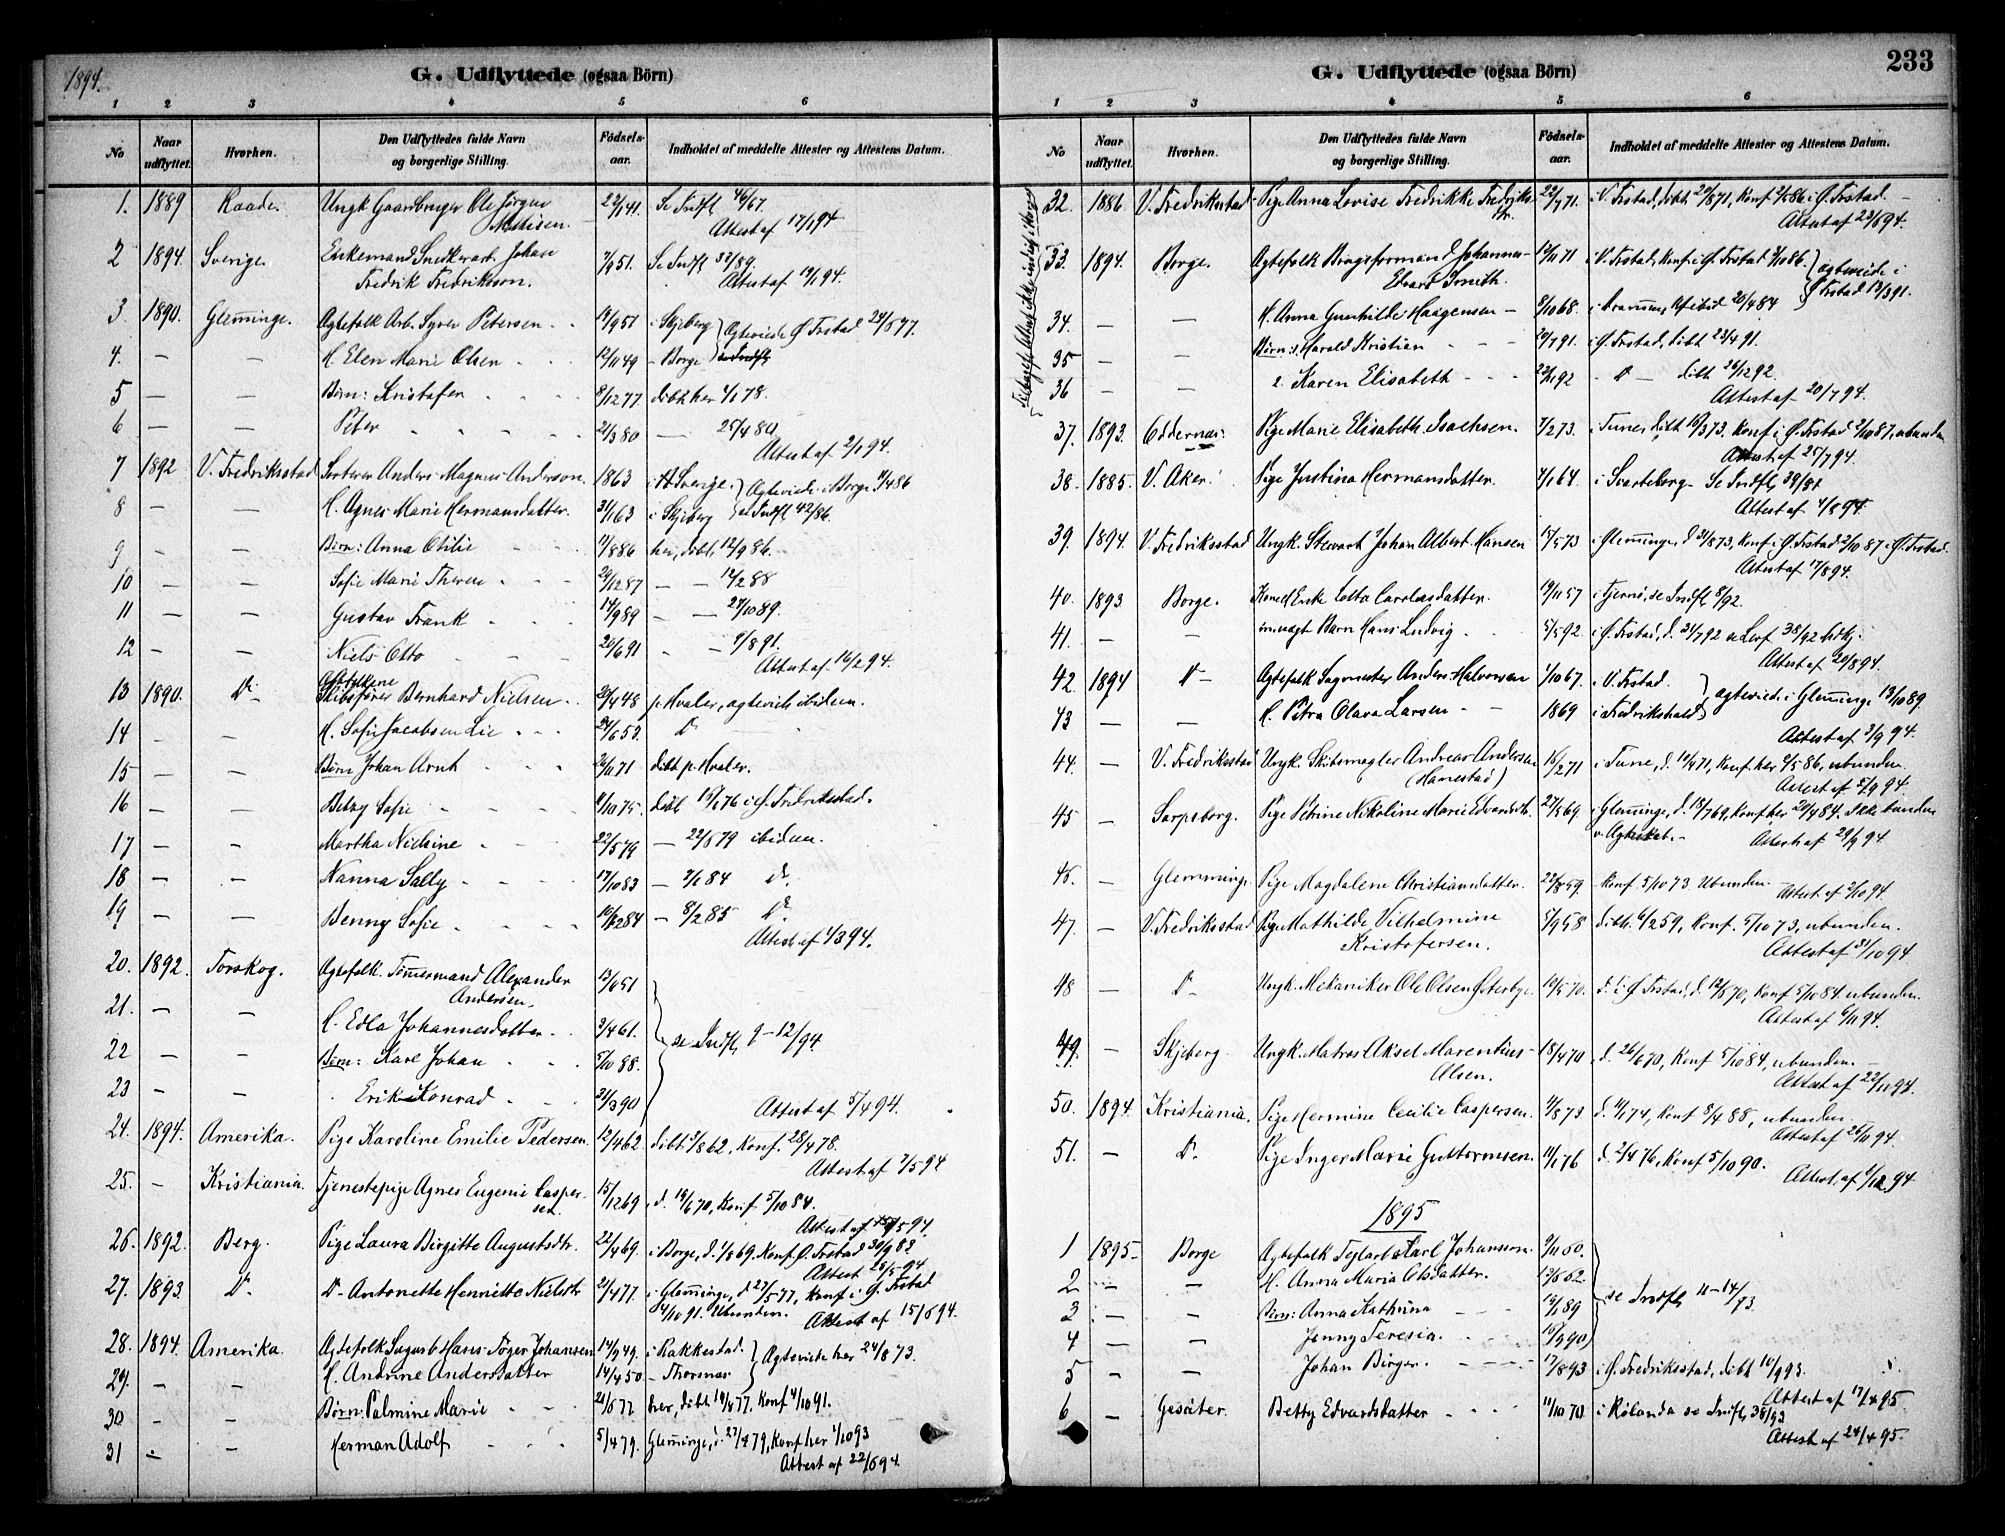 1894.
G. Udflyttede (ogsaa Börn)
1 2 3 4 5 6
No
Naar udflyttet.
Hvorhen.
Den Udflyttedes fulde Navn og borgerlige Stilling.
Födsels-aar.
Indholdet af meddelte Attester og Attestens Datum.
1. 1889 Raade. Ungk Gaardbruger Ole Jörgen Mathisen. 22/1 41. Se Indfl 46/67.
Attest af 17/1 94
2 1894. Sverige. Enkemand Snedkerarb. Johan Fredrik Fredriksson. 7/9 51. Se Indfl 32/89.
Attest af 19/1 94.
3 1890. Glemminge. Agtefolk Arb. Syver Petersen 19/9 51 i Skjeberg Agteviede Ø. Frstad 24/5 77.
4. — — H. Elen Marie Olsen 12/11 49 - Borge
5 — — Börn: Kristofer 8/12 77 döbt her 4/1 78.
6 — — Peter 21/3 80 — 25/4 80
Attest af 2/1 94.
7 1892 V. Fredriksstad Sorterer Anders Magnus Anderson. 1863 i Sverige. Agteviede i Borge 4/4 86
8 — — H. Agnes Marie Hermansdatter. 31/1 63 i Skjeberg se Indfl 42/86.
9 — — Börn: Anna Otilie 11/8 86 her, döbt 12/9 86.
10 — — Sofie Marie Therese 29/12 87 — — 12/2 88
11 — — Gustav Frank 14/9 89 — — 27/10 89.
12 — — Niels Otto 20/6 91 - - 9/8 91.
Attest af 16/2 94.
13 1890. Do Agtefolkene Skibsförer Bernhard Nielsen 20/4 48 p. Hvaler, agteviede ibidem.
14 — — H. Sofie Jacobsen Lie 24/6 52. Do
15 — — Börn Johan Arnt 2/11 71 döbt p. Hvaler.
16 — — Betzy Sofie 9/10 75. döbt 16/1 76 i Ø. Fredriksstad.
17 — — Martha Nicoline 22/5 79 — 22/6 79 ibidem.
18 — — Nanna Sally 17/10 83 — 2/1 84 do.
19 — — Benny Sofie 10/12 84 — 8/2 85 Do
Attest af 1/3 94.
20. 1892. Torskog. Agtefolk. Tömmermand Alexander Andersen. 13/6 51
21. — — H. Edla Johannesdatter 2/4 61. se Indfl 9-12/94
22 — — Börn: Karl Johan 5/10 88.
23 — — Erik Konrad 21/3 90
Attest af 5/4 94.
24. 1894. Amerika. Pige Karoline Emilie Pedersen. 12/4 62. döbt 3/8 62, Konf. 28/4 78.
Attest af 7/5 94
25. — Kristiania. Tjenestepige Agnes Eugenie Caspersen. 15/12 69 d. 19/6 70, Konf 5/10 84.
Attest af 15/5 94.
26. 1892. Berg. Pige Laura Birgitte Augustsdtr. 22/4 69. i Borge, d. 1/8 69. Konf Ø. Frstad 30/9 83
Attest 25/5 94
27. 1893. Do Do Antonette Henriette Nielsdtr 21/4 77. i Glemminge, d 27/5 77, Konf i Ø. Frstad
4/10 91. Ubunden. Attest af 15/6 94.
28. 1894. Amerika. Agtefolk Sagarb Hans Töger Johansen 14/9 49. i Rakkestad. Agteviede her 24/8 73.
29. — — H. Andrine Andersdatter 14/4 50 - Thorsnæs
30 — — Börn: Palmine Marie 21/5 77 her, döbt 19/8 77. Konf 4/10 91.
31 — — Herman Adolf 5/4 79. Glemminge, d. 27/4 79, Konf her 1/10 93
Attest af 22/6 94.
233
G. Udflyttede (ogsaa Börn)
1 2 3 4 5 6
No
Naar udflyttet.
Hvorhen.
Den Udflyttedes fulde Navn og borgerlige Stilling.
Födsels-aar.
Indholdet af meddelte Attester og Attestens Datum.
32. 1886. V. Fredriksstad Pige Anna Lovise Fredrikke Fredriksdtr. 22/7 71. i V. Frstad, döbt 20/8 71, Konf 2/5 86 i Ø. Frstad.
Attest af 23/6 94.
33. 1894. Borge. Agtefolk Brugsformand Johannes Edvard Smith. 12/11 71 i V. Frstad, Konf i Ø. Frstad 3/10 86. agteviede i Ø Frstad 13/3 91.
34. — — H. Anna Gunhilde Haagensen 8/10 68. i Drammen, Konf ibid 20/4 84
35 — — Börn: 1. Harald Kristian 20/7 91. i Ø. Frstad, döbt 23/4 91.
36 — — 2. Karen Elisabeth 22/11 92 - Do — döbt 26/12 92.
Attest af 20/7 94.
37. 1893. Oddernæs. Pige Marie Elisabeth Isachsen. 7/2 73. i Tune, döbt 16/3 73, Konf i Ø. Frstad 2/10 87, ubunden
Attest af 25/7 94.
38. 1885. V. Aker. Pige Justina Hermansdatter. 4/1 64. i Svarteborg. Se Indfl, 38/81.
Attest af 4/8 94.
39. 1894. V. Fredriksstad Ungk. Stewart Johan Albert Hansen 17/5 73 i Glemminge, d 31/8 73, Konf i Ø. Frstad 2/10 87 i Ø. Frstad.
Attest af 17/8 94.
40. 1893. Borge. Kone Enke Lotta Carolasdatter. 19/11 57 i Tjernö, se Indfl 8/92.
41. — — Barn Hans Ludvig 5/5 92. i Ø. Frstad, d. 31/7 92
Attest af 20/8 94.
42. 1894 Do Agtefolk Sagmester Anders Halvorsen 1/10 67. i V. Frstad. agteviede i Glemminge 13/10 89.
43 — — H. Petra Olava Larsen 1869 i Fredrikshald
Attest af 3/9 94.
44. — V. Fredriksstad Ungk. Skibsmægler Andreas Andersen (Hannestad) 16/2 71 i Tune, d. 10/4 71, Konf her 2/5 86, ubunden.
Attest af 5/9 94.
45 — Sarpsborg. Pige Petrine Nikoline Marie Edvardsdtr. 27/5 69. i Glemminge, d. 18/7 69, Konf her 20/4 84. Ikke bunden
v. Agteskab. Attest af 29/9 94.
46. — Glemminge Pige Magdalene Christiansdatter. 22/8 59 Konf 5/10 73. Ubunden. Attest af 2/10 94.
47. — V. Fredriksstad Pige Mathilde Vilhelmine Kristofersen. 5/9 58 döbt 6/2 59, Konf. 5/10 73, ubunden.
Attest af 31/10 94
48 — Do Ungk. Mekaniker Ole Olsen Österbye. 10/5 70. d. i Ø. Frstad, d. 12/6 70, Konf 5/10 84. ubunden.
Attest af 6/11 94.
49. — Skjeberg Ungk. Matros Aksel Marentius Olsen. 18/4 70 d. 26/6 70, Konf 5/10 84, ubunden.
Attest af 22/11 94.
50. 1894. Kristiania. Pige Hermine Cecilie Caspersen. 11/8 73 d. 11/1 74, Konf 8/4 88, ubunden
Attest af 26/11 94.
51. — Do Pige Inger Marie Guttormsen. 11/1 76 d. 2/4 76, Konf 5/10 90.
Attest af 1/12 94
1895
1 1895 Borge Agtefolk Teglarb Carl Johansson 9/11 50.
2 — — H. Anna Maria Olsdatter. 13/6 62. se Indfl 11-14/93.
3 — — Börn: Anna Kathrina 16/1 89
4 — — Jenny Teresia. 10/9 90
5 — — Johan Birger. 17/8 93 i Ø. Fredriksstad, döbt 10/9 93.
Attest af 17/4 95.
6 — Gesäter. Betty Edvardsdatter 11/10 70. i Rölanda se Indfl, 38/93
Attest af 24/4 95.